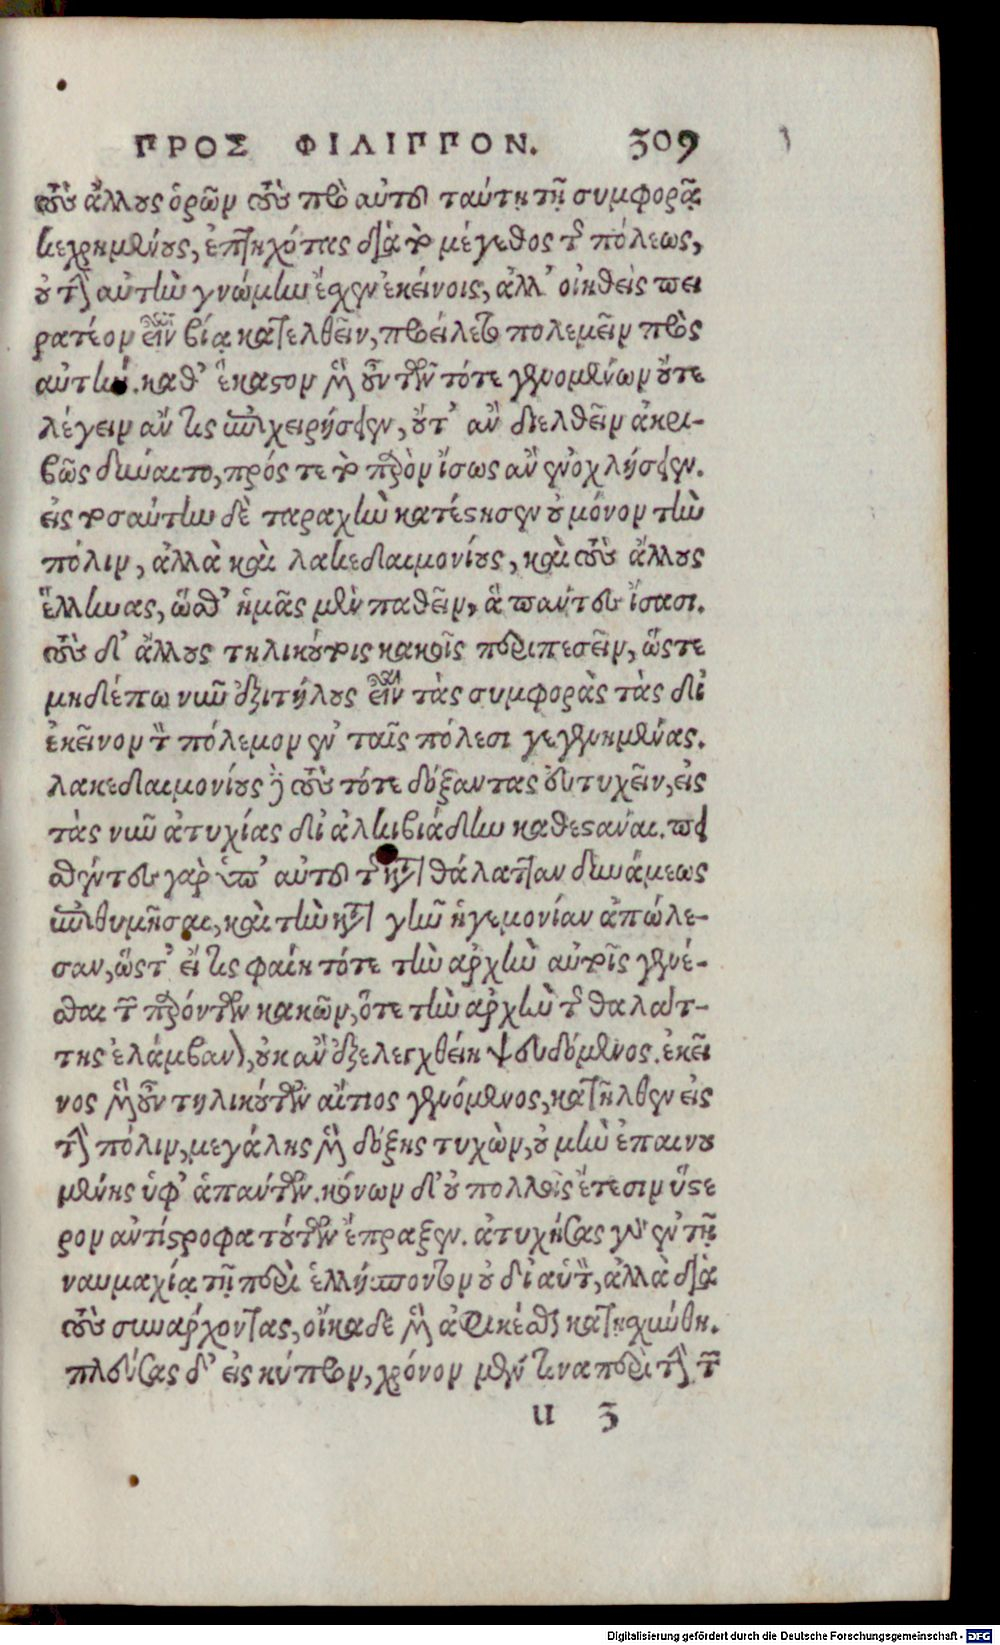 ΠΡΟΣ ΦΙΛΙΠΠΟΝ. 309
τοὺς ἄλλους ὁρῶν τοὺς πρὸ αὐτοῦ ταύτῃ τῇ συμφορᾷ
κεχρημένους, ἐπτηχότας διὰ τὸ μέγεθος τῆς πόλεως,
οὐ τὴν αὐτὴν γνώμην ἔχεν ἐκείνοις, ἀλλ' οἰηθεὶς πει
ρατέον εἶναι βίᾳ κατελθεῖν, προείλετο πολεμεῖν πρὸς
αὐτήν. καθ' ἕκαστον μὲν οὖν τῶν τότε γενομένων οὔτε
λέγειν ἄν τις ἐπιχειρήσειεν, οὔτ' ἂν διελθεῖν ἀκρι-
βῶς δύναιτο, πρός τε τὸ παρὸν ἴσως ἂν ἐνοχλήσειεν.
εἰς τοσαύτην δὲ ταραχὴν κατέστησεν οὐ μόνον τὴν
πόλιν, ἀλλὰ καὶ λακεδαιμονίους, καὶ τοὺς ἄλλους
ἕλληνας, ὥσθ' ἡμᾶς μὲν παθεῖν, ἃ πάντες ἴσασι.
τοὺς δ' ἄλλους τηλικούτοις κακοῖς περιπεσεῖν, ὥστε
μηδέπω νῦν ἐξιτήλους εἶναι τὰς συμφορὰς τὰς δι'
ἐκεῖνον τὸν πόλεμον ἐν ταῖς πόλεσι γεγενημένας.
λακεδαιμονίους δὲ τοὺς τότε δόξαντας εὐτυχεῖν, εἰς
τὰς νῦν ἀτυχίας δι' ἀλκιβιάδην καθεστάναι. πει
σθέντες γὰρ ὑπ' αὐτοῦ τῆς κατὰ θάλατταν δυνάμεως
ἐπιθυμῆσαι, καὶ τὴν κατὰ γῆν ἡγεμονίαν ἀπώλε-
σαν, ὥστ' εἴ τις φαίη τότε τὴν ἀρχὴν αὐτοῖς γενέ-
σθαι τῶν παρόντων κακῶν, ὅτε τὴν ἀρχὴν τῆς θαλάτ-
της ἐλάμβανον, οὐκ ἂν ἐξελεγχθείη ψευδόμενος. ἐκεῖ
νος μὲν οὖν τηλικούτων αἴτιος γενόμενος, κατῆλθεν εἰς
τὴν πόλιν, μεγάλης μὲν δόξης τυχὼν, οὐ μὴν ἐπαινου
μένης ὑφ' ἁπάντων. κόνων δ' οὐ πολλοῖς ἔτεσιν ὕστε
ρον ἀντίστροφα τούτων ἔπραξεν. ἀτυχήσας γὰρ ἐν τῇ
ναυμαχίᾳ τῇ περὶ ἑλλήσποντον οὐ δι' αὑτὸν, ἀλλὰ διὰ
τοὺς συνάρχοντας, οἴκαδε μὲν ἀφικέσθαι κατῃσχύνθη.
πλεύσας δ' εἰς κύπρον, χρόνον μέν τινα περὶ τὴν τῶν
u 3
Digitalisierung gefördert durch die Deutsche Forschungsgemeinschaft - DFG